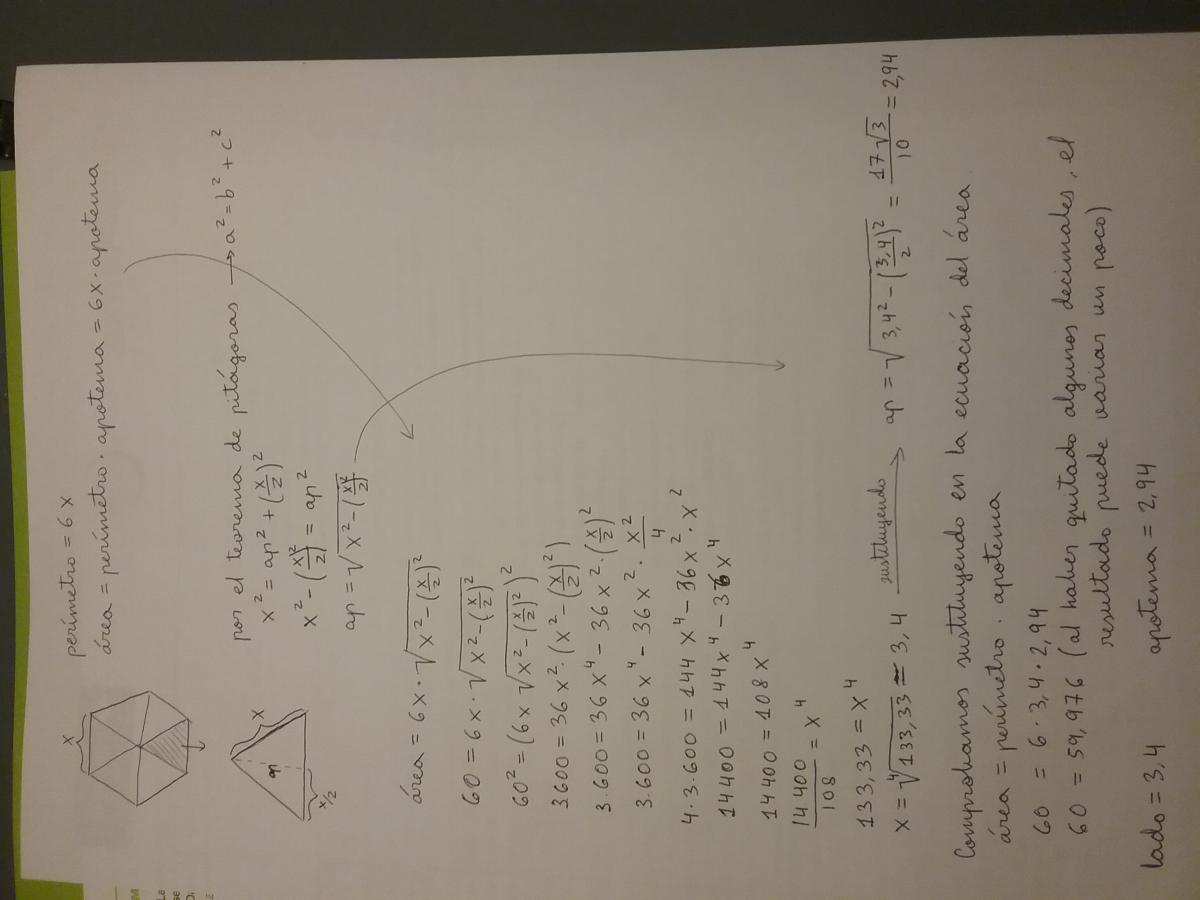 x
perímetro = 6x
área = perímetro · apotema = 6x · apotema
x
ap
x/2
por el teorema de pitágoras → a² = b² + c²
x² = ap² + (x/2)²
x² - (x/2)² = ap²
ap = √(x² - (x/2)²)
área = 6x · √(x² - (x/2)²)
60 = 6x · √(x² - (x/2)²)
60² = (6x √(x² - (x/2)²))²
3600 = 36x² · (x² - (x/2)²)
3.600 = 36x⁴ - 36x² · (x/2)²
3.600 = 36x⁴ - 36x² · x²/4
4 · 3.600 = 144x⁴ - 36x² · x²
14400 = 144x⁴ - 36x⁴
14400 = 108x⁴
14400/108 = x⁴
133,33 = x⁴
x = ⁴√133,33 ≃ 3,4 sustituyendo → ap = √(3,4² - (3,4/2)²) = 17√3/10 = 2,94
Comprobamos sustituyendo en la ecuación del área.
área = perímetro · apotema
60 = 6 · 3,4 · 2,94
60 = 59,976 (al haber quitado algunos decimales, el
resultado puede varias un poco)
lado = 3,4 apotema = 2,94